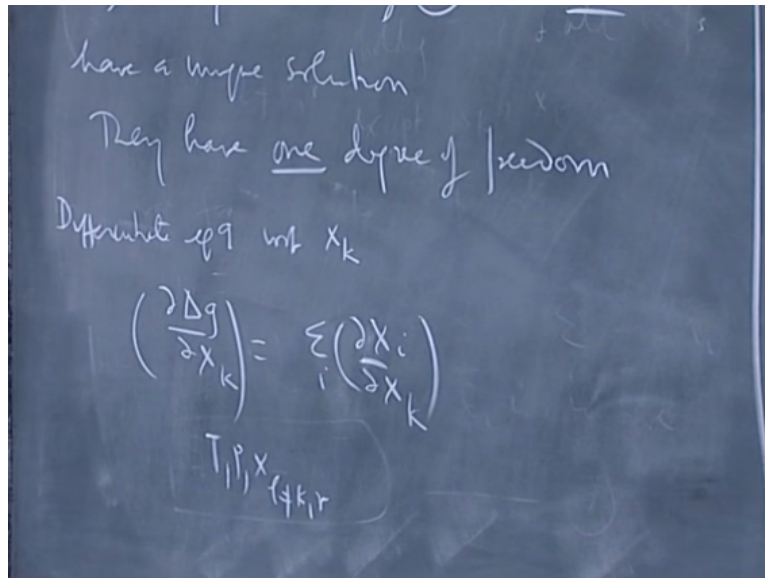 have a unique solution
They have one degree of freedom
Differentiate eq 9 wrt x_k
(∂Δg/∂x_k) = Σ_i (∂x_i/∂x_k)
T, P, x_{l≠k,r}